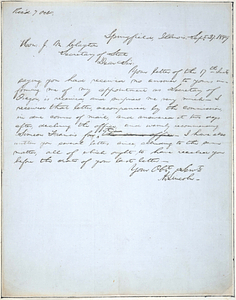 Springfield, Illinois Sept. 27, 1849
Hon. J. M. Clayton
Secretary of State
Dear Sir:
Your letter of the 17th Inst.
saying you have received no answer to yours in-
forming me of my appointment as Secretary of
Oregon is received, and surprises me very much. I
received that letter, accompanied by the commission
in due course of mail, and answered it two days
after, declining the office, and warmly recommending
Simeon Francis for
I have also
written you several letters since alluding to the same
matter, all of which ought to have reached you
before the date of your last letter.
Your Obt. Servt.
A. Lincoln